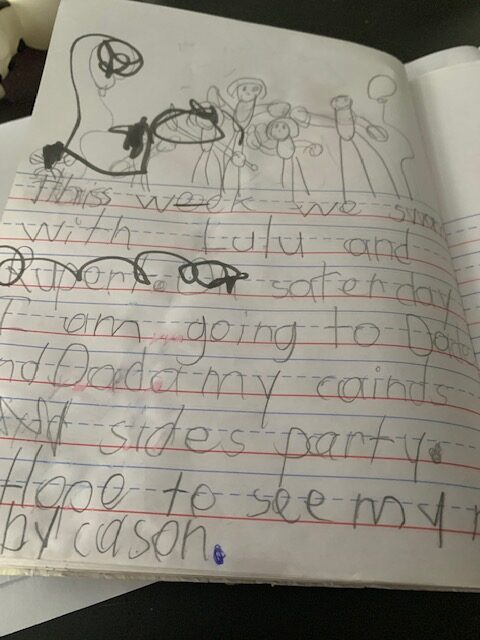 this week we
with Lulu and
saterday
I am going to
Dada my cainds
sides party.
Hope to see my
by cason.